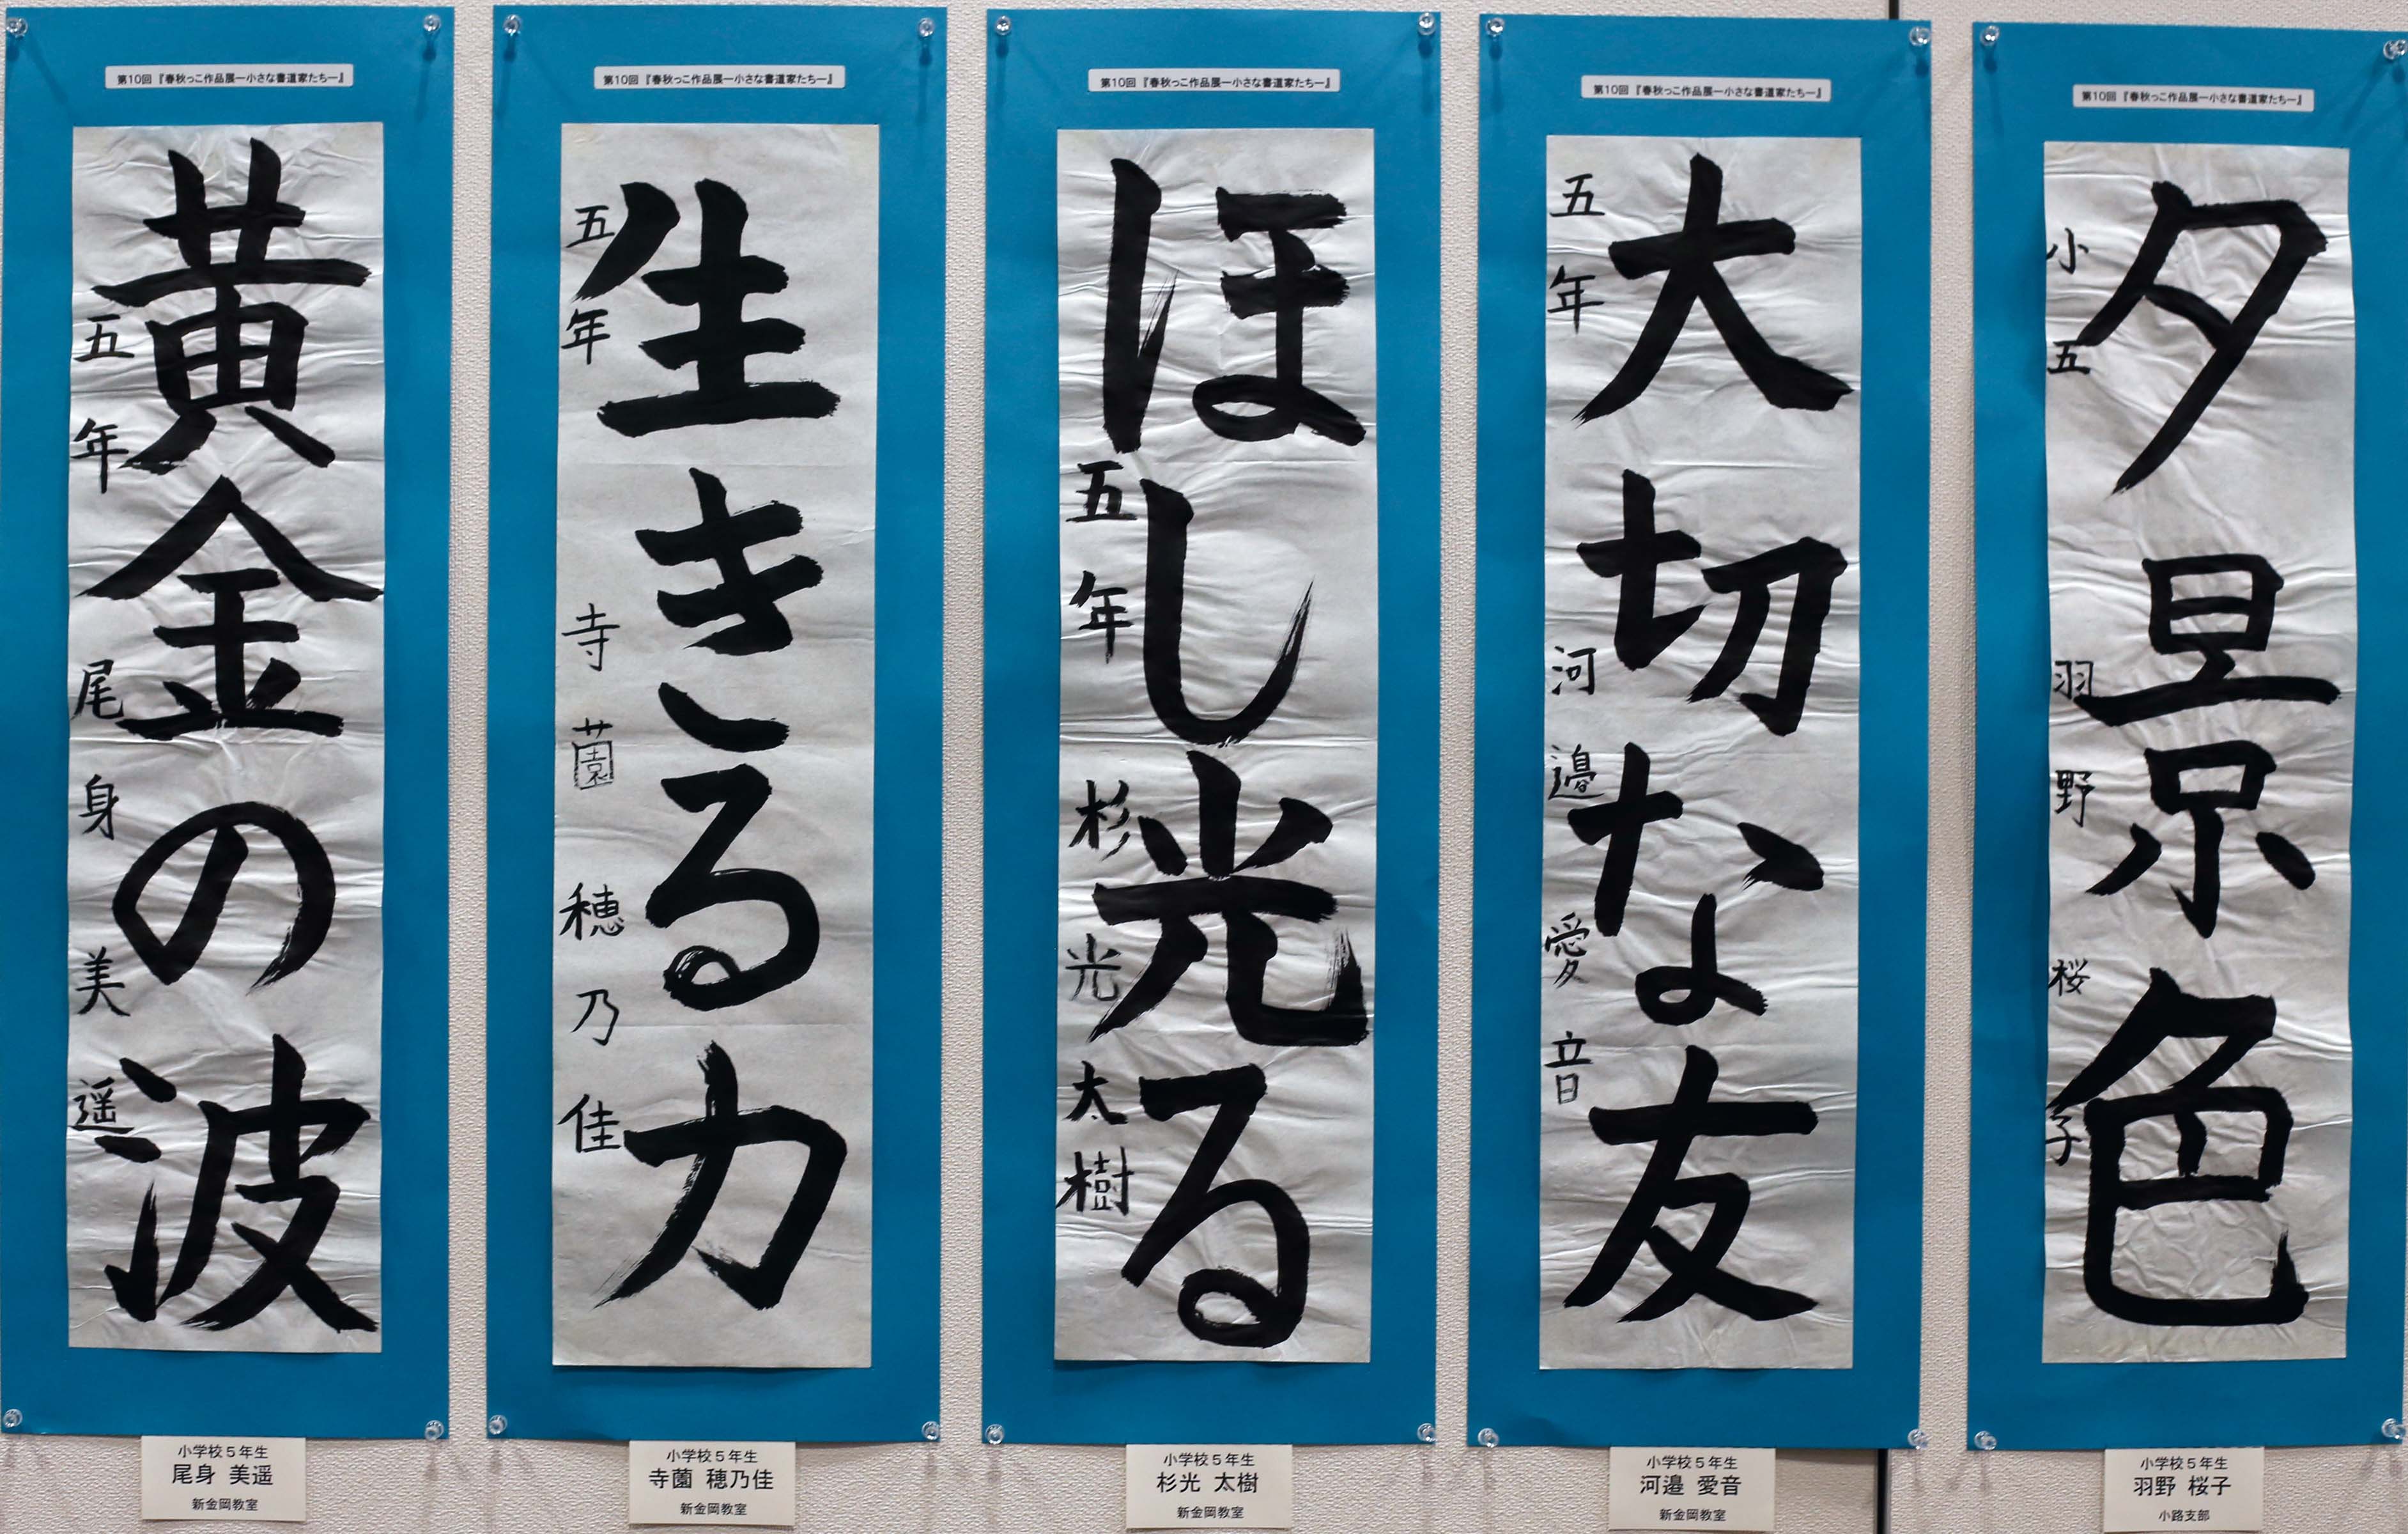 第10回『春秋っこ作品展ー小さな書道家たちー』
黄金の波
五年 尾身美遥
小学校5年生
尾身 美遥
新金岡教室
第10回『春秋っこ作品展ー小さな書道家たちー』
生きる力
五年 寺薗穂乃佳
小学校5年生
寺薗 穂乃佳
新金岡教室
第10回『春秋っこ作品展ー小さな書道家たちー』
ほし光る
五年 杉光太樹
小学校5年生
杉光 太樹
新金岡教室
第10回『春秋っこ作品展ー小さな書道家たちー』
大切な友
五年 河邉愛音
小学校5年生
河邉 愛音
新金岡教室
第10回『春秋っこ作品展ー小さな書道家たちー』
夕景色
小五 羽野桜子
小学校5年生
羽野 桜子
小路支部